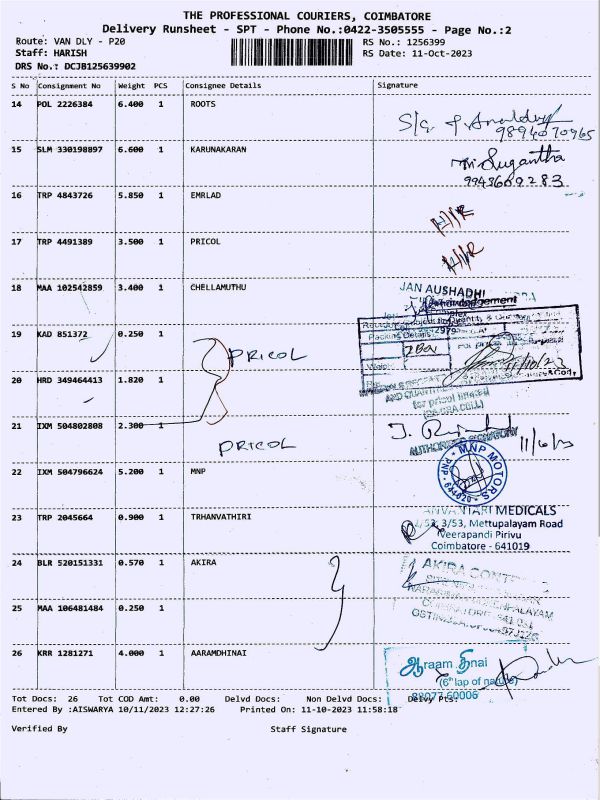 THE PROFESSIONAL COURIERS, COIMBATORE
Delivery Runsheet - SPT - Phone No.:0422-3505555 - Page No.:2
Route: VAN DLY - P20 RS No.: 1256399
Staff: HARISH RS Date: 11-Oct-2023
DRS No.: DCJB125639902
S No Consignment No Weight PCS Consignee Details Signature
14 POL 2226384 6.400 1 ROOTS
9894070965
15 SLM 330198897 6.600 1 KARUNAKARAN
Sugantha
9943609283
16 TRP 4843726 5.850 1 EMRLAD
17 TRP 4491389 3.500 1 PRICOL
18 MAA 102542859 3.400 1 CHELLAMUTHU
JAN AUSHADHI
19 KAD 851372 0.250 1
PRICOL
Packing Details
11/10/23
20 HRD 349464413 1.820 1
for pricol limited
21 IXM 504802808 2.300 1
PRICOL
AUTHORISED SIGNATORY
22 IXM 504796624 5.200 1 MNP
MNP MOTORS
23 TRP 2045664 0.900 1 TRHANVATHIRI
MEDICALS
3/53, Mettupalayam Road
Veerapandi Pirivu
Coimbatore - 641019
24 BLR 520151331 0.570 1 AKIRA
AKIRA
25 MAA 106481484 0.250 1
26 KRR 1281271 4.000 1 AARAMDHINAI
ஆraam திnai
(6th lap of nature)
88077 60006
Tot Docs: 26 Tot COD Amt: 0.00 Delvd Docs: Non Delvd Docs: Delvy Pts:
Entered By :AISWARYA 10/11/2023 12:27:26 Printed On: 11-10-2023 11:58:18
Verified By Staff Signature